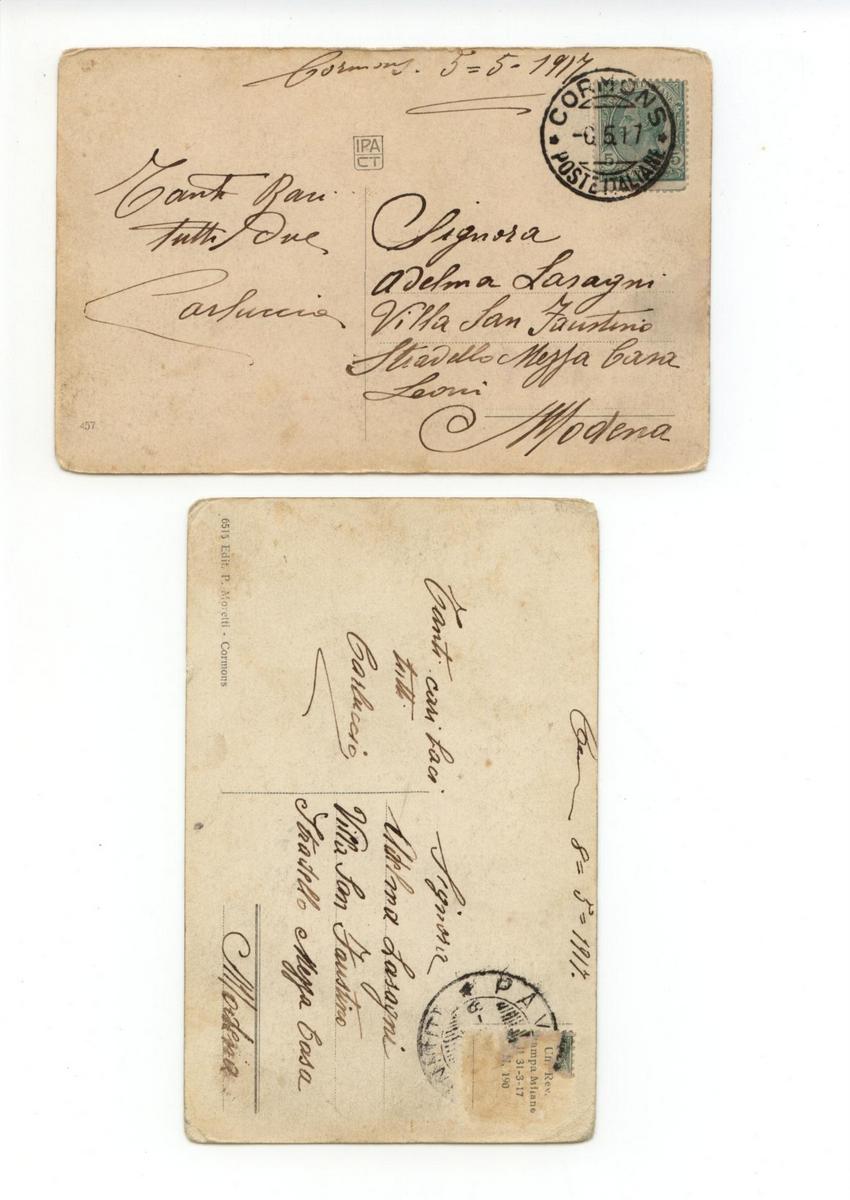 Cormons. 5=5-1917
CORMONS
-6.5.17
POSTE ITALIANE
5 5
IPA
CT
Tanti Baci
tutti due
Carluccio
Signora
Adelma Lasagni
Villa San Faustino
Stradello Mezza Casa
Leoni
Modena
457
8=5=1917.
Tanti cari baci
tutti
Carluccio
Signora
Adelma Lasagni
Villa San Faustino
Stradello Mezza Casa
Modena
PAV
Uff. Rev.
Stampa Milano
31-3-17
N. 190
6515 Edit. P. Moretti - Cormons